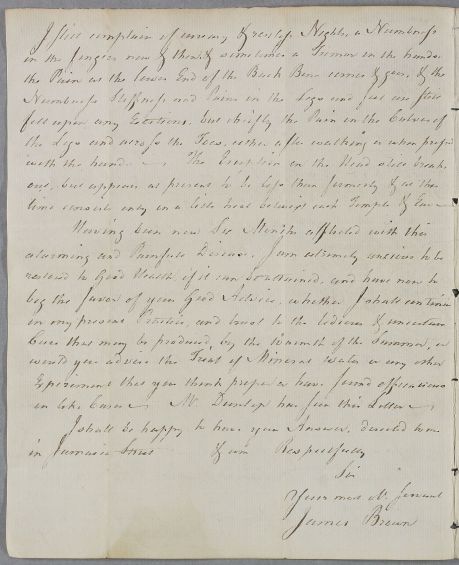 I still complain of uneasy & restless Nights, a Numbness
in the fingers now & then & sometimes a Tremor in the hands
the Pain at the lower End of the Back Bone comes & goes, & the
Numbness Stiffness and Pains in the Legs and feet are still
felt upon any Exertions, but chiefly the Pain in the Calves of
the Legs and across the Toes, either after walking or when press'd
with the hand. The Eruption on the Head still breaks
out, but appears at present to be less than formerly & at this
time consists only in a little heat betwixt each Temple & Ear
Having been now Six Months afflicted with this
alarming and Painfull Disease, I am extremely anxious to be
restored to Good Health, if it can be obtained, and have now to
beg the favor of your Good Advice, whether I shall continue
in my present Practice, and trust to the tedious & uncertain
Cure that may be produced, by the Warmth of the Summer, or
would you advise the Treat of Mineral Water or any other
Experiment that you think proper or have found efficacious
in like Cases. Mr. Dunlop has seen this Letter
I shall be happy to have your Answer, directed to me
in Jamaica Street & am Respectfully
Sir
Your most Ob. Servant
James Brown